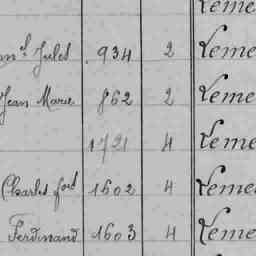 Leme
Jules 934 2 Leme
Jean Marie 862 2 Leme
1721 4 Leme
Charles ford 1602 4 Leme
Ferdinand 1603 4 Leme